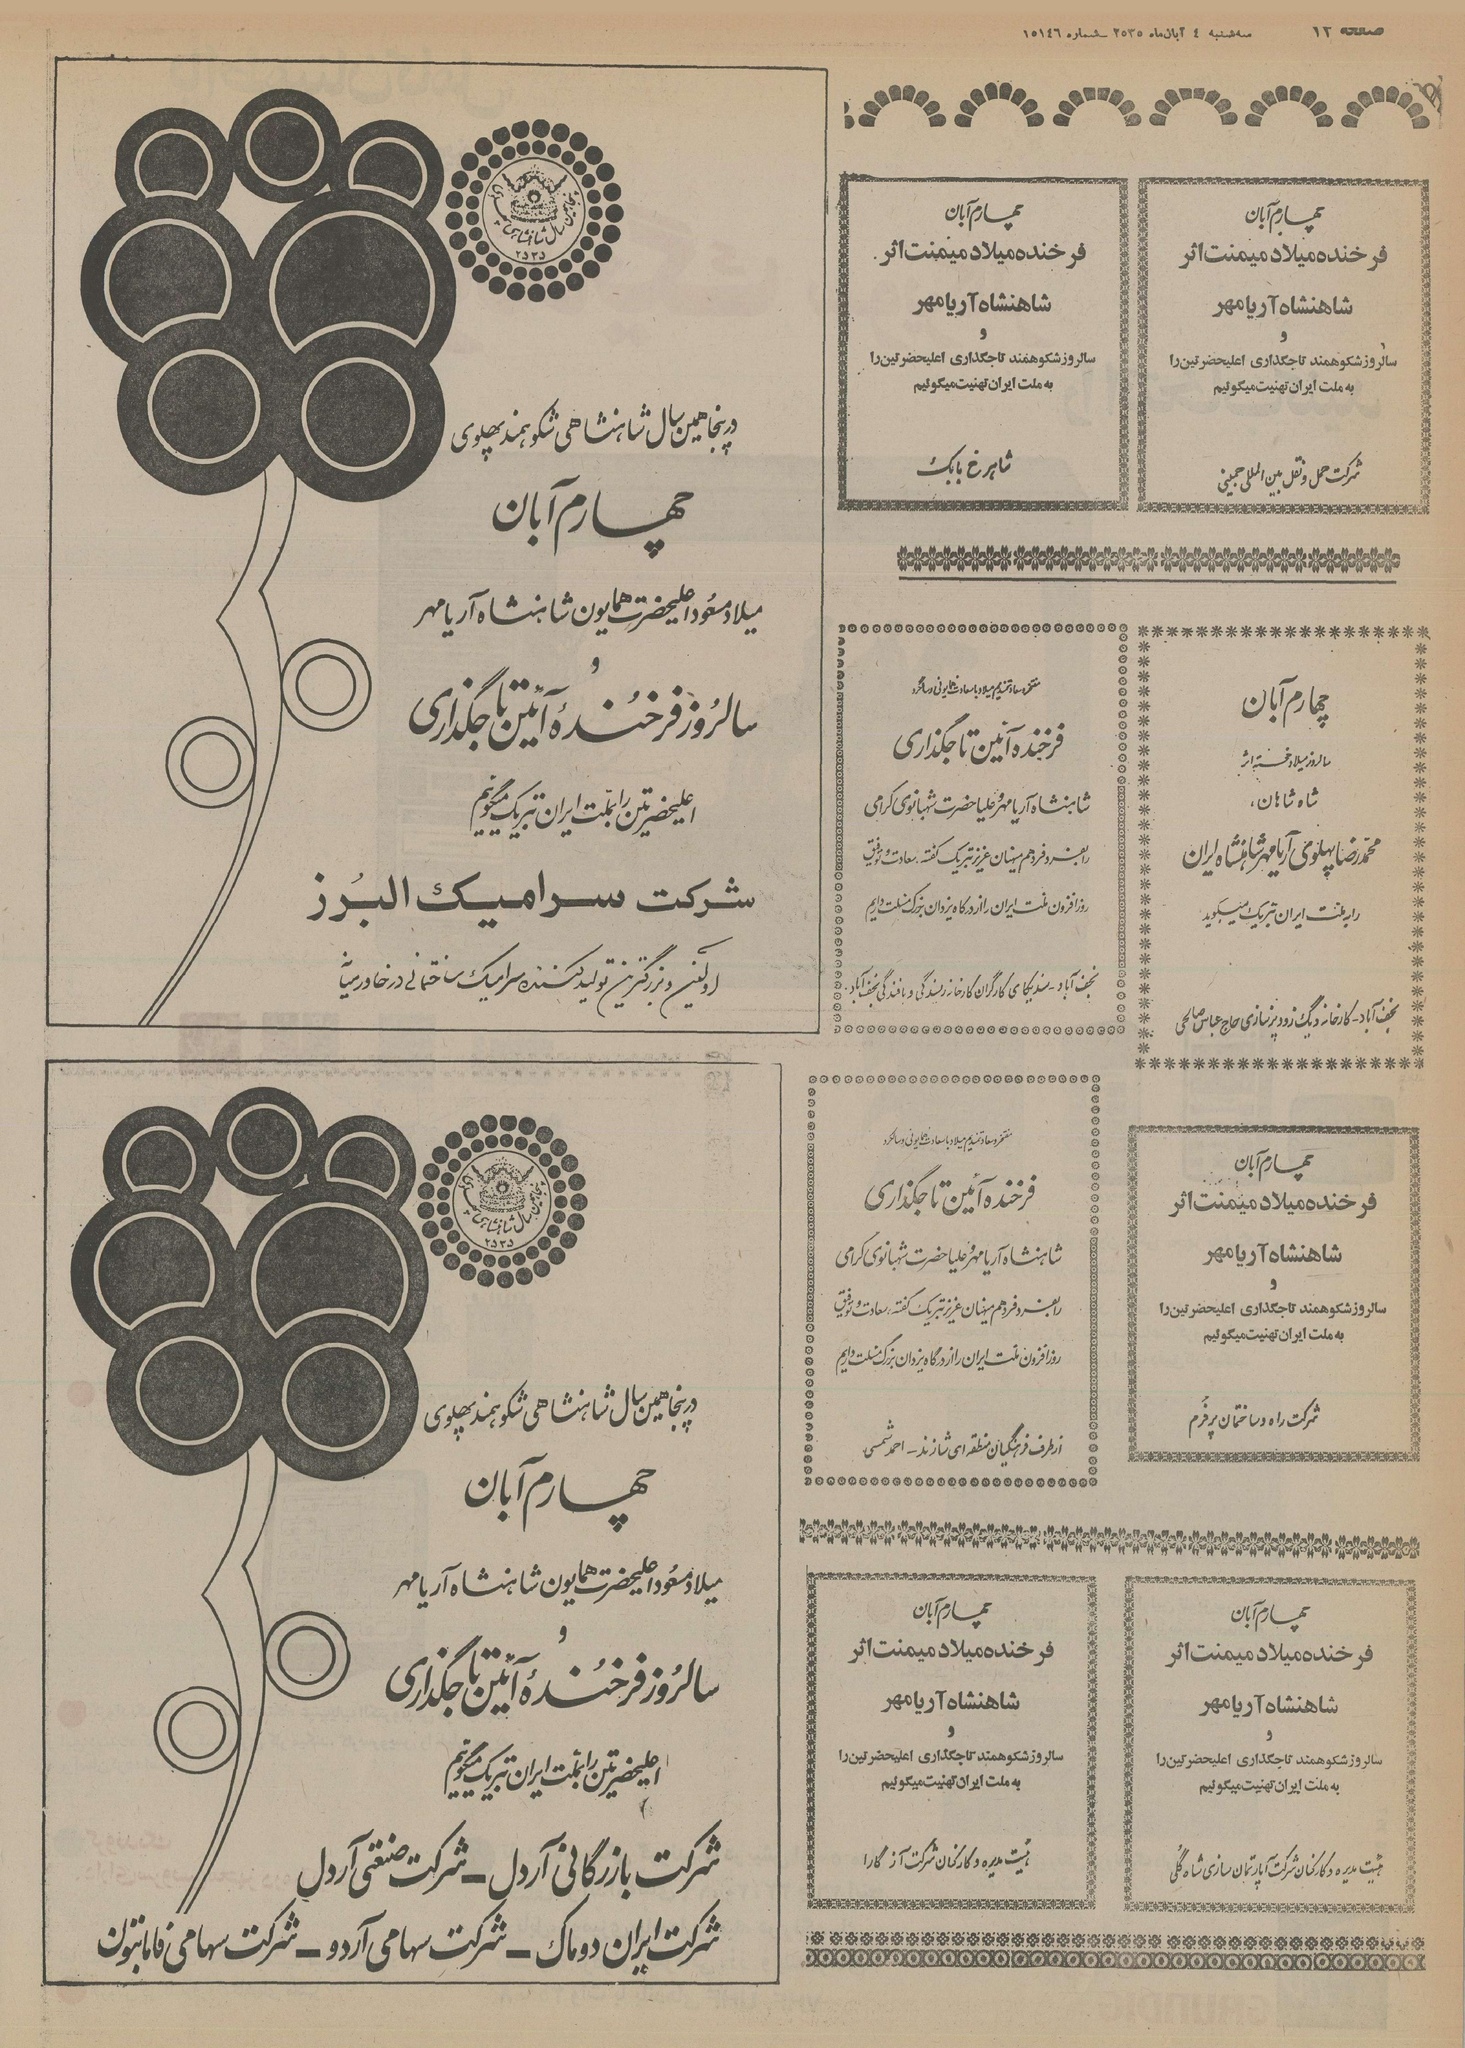 صفحه ۱۲
سه‌شنبه ۴ آبان‌ماه ۲۵۳۵ ـ شماره ۱۵۱۴۶
چهارم آبان
فرخنده میلاد میمنت اثر
شاهنشاه آریامهر
و
سالروز شکوهمند تاجگذاری اعلیحضرتین را
به ملت ایران تهنیت میگوئیم
شرکت حمل و نقل بین المللی خمینی
چهارم آبان
فرخنده میلاد میمنت اثر
شاهنشاه آریامهر
و
سالروز شکوهمند تاجگذاری اعلیحضرتین را
به ملت ایران تهنیت میگوئیم
شاهرخ بابک
پنجاهمین سال شاهنشاهی پهلوی
۲۵۳۵
در پنجاهمین سال شاهنشاهی شکوهمند پهلوی
چهارم آبان
میلاد مسعود اعلیحضرت همایون شاهنشاه آریامهر
و
سالروز فرخندهٔ آئین تاجگذاری
اعلیحضرتین را بملت ایران تبریک میگوئیم
شرکت سرامیک البرز
اولین و بزرگترین تولید کننده سرامیک ساختمانی در خاورمیانه
چهارم آبان
سالروز میلاد خجسته اثر
شاه شاهان،
محمدرضا پهلوی آریامهر شاهنشاه ایران
را به ملت ایران تبریک میگوید
نجف آباد ـ کارخانه دیگ زودپز سازی حاج عباس صالحی
مفتخر و سعادتمندیم میلاد با سعادت همایونی و سالگرد
فرخنده آئین تاجگذاری
شاهنشاه آریامهر و علیاحضرت شهبانوی گرامی
را بفرد فرد هم میهنان عزیز تبریک گفته، سعادت و توفیق
روزافزون ملت ایران را از درگاه یزدان بزرگ مسئلت داریم
نجف آباد ـ سندیکای کارگران کارخانه ریسندگی و بافندگی نجف آباد
چهارم آبان
فرخنده میلاد میمنت اثر
شاهنشاه آریامهر
و
سالروز شکوهمند تاجگذاری اعلیحضرتین را
به ملت ایران تهنیت میگوئیم
شرکت راه و ساختمان پرفرم
مفتخر و سعادتمندیم میلاد با سعادت همایونی و سالگرد
فرخنده آئین تاجگذاری
شاهنشاه آریامهر و علیاحضرت شهبانوی گرامی
را بفرد فرد هم میهنان عزیز تبریک گفته، سعادت و توفیق
روزافزون ملت ایران را از درگاه یزدان بزرگ مسئلت داریم
از طرف فرهنگیان منطقه ای شازند ـ احمد شمسی
پنجاهمین سال شاهنشاهی پهلوی
۲۵۳۵
در پنجاهمین سال شاهنشاهی شکوهمند پهلوی
چهارم آبان
میلاد مسعود اعلیحضرت همایون شاهنشاه آریامهر
و
سالروز فرخندهٔ آئین تاجگذاری
اعلیحضرتین را بملت ایران تبریک میگوئیم
شرکت بازرگانی آردل ـ شرکت صنعتی آردل
شرکت ایران دوماک ـ شرکت سهامی آردو ـ شرکت سهامی
چهارم آبان
فرخنده میلاد میمنت اثر
شاهنشاه آریامهر
و
سالروز شکوهمند تاجگذاری اعلیحضرتین را
به ملت ایران تهنیت میگوئیم
هیئت مدیره و کارکنان شرکت آپارتمان سازی شاه گلی
چهارم آبان
فرخنده میلاد میمنت اثر
شاهنشاه آریامهر
و
سالروز شکوهمند تاجگذاری اعلیحضرتین را
به ملت ایران تهنیت میگوئیم
هیئت مدیره و کارکنان شرکت